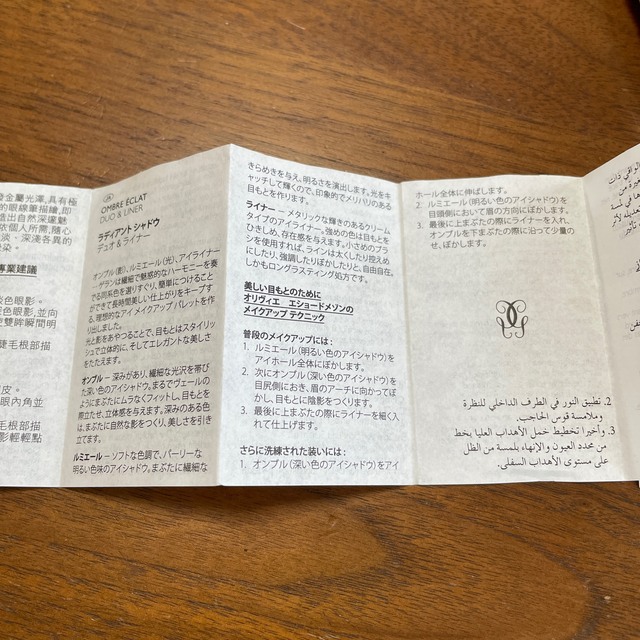 發金屬光澤,具有極
的眼線筆描繪,即
造出自然深邃魅
依個人所需,隨心
淡、深淺各異的
染。
專業建議
淡色眼影。
色眼影,並向
使雙眸瞬間明
睫毛根部描
皮。
眼內角並
毛根部描
影輕輕點
OMBRE ECLAT
DUO & LINER
ラディアント シャドウ
デュオ & ライナー
オンブル(影)、ルミエール(光)、アイライナー
ーゲランは繊細で魅惑的なハーモニーを奏
でる同系色を選りすぐり、簡単につけること
ができて長時間美しい仕上がりをキープす
る、理想的なアイメイクアップ パレットを作
り出しました。
光と影をあやつることで、目もとはスタイリッ
シュで立体的に、そしてエレガントな美しさ
をたたえます。
オンブル ー 深みがあり、繊細な光沢を帯び
た深い色のアイシャドウ。まるでヴェールの
ようにまぶたにムラなくフィットし、目もとを
際立たせ、立体感を与えます。深みのある色
は、まぶたに自然な影をつくり、美しさを引き
立てます。
ルミエール ー ソフトな色調で、パーリーな
明るい色味のアイシャドウ。まぶたに繊細な
きらめきを与え、明るさを演出します。光をキ
ャッチして輝くので、印象的でメリハリのある
目もとを作ります。
ライナー ー メタリックな輝きのあるクリーム
タイプのアイライナー。強めの色は目もとを
ひきしめ、存在感を与えます。小さめのブラ
シを使用すれば、ラインは太くしたり控えめ
にしたり、強調したりぼかしたりと、自由自在。
しかもロングラスティング処方です。
美しい目もとのために
オリヴィエ エショードメゾンの
メイクアップ テクニック
普段のメイクアップには :
1. ルミエール(明るい色のアイシャドウ)を
アイホール全体にぼかします。
2. 次にオンブル(深い色のアイシャドウ)を
目尻側におき、眉のアーチに向かってぼ
かし、目もとに陰影をつくります。
3. 最後に上まぶたの際にライナーを細く入
れて仕上げます。
さらに洗練された装いには :
1. オンブル(深い色のアイシャドウ)をアイ
ホール全体に伸ばします。
2. ルミエール(明るい色のアイシャドウ)を
目頭側において眉の方向にぼかします。
3. 最後に上まぶたの際にライナーを入れ、
オンブルを下まぶたの際に沿って少量の
せ、ぼかします。
2. تطبيق النور في الطرف الداخلي للنظرة
وملامسة قوس الحاجب.
3. وأخيرا تخطيط خمل الأهداب العليا بخط
من محدد العيون والإنهاء بلمسة من الظل
على مستوى الأهداب السفلى.